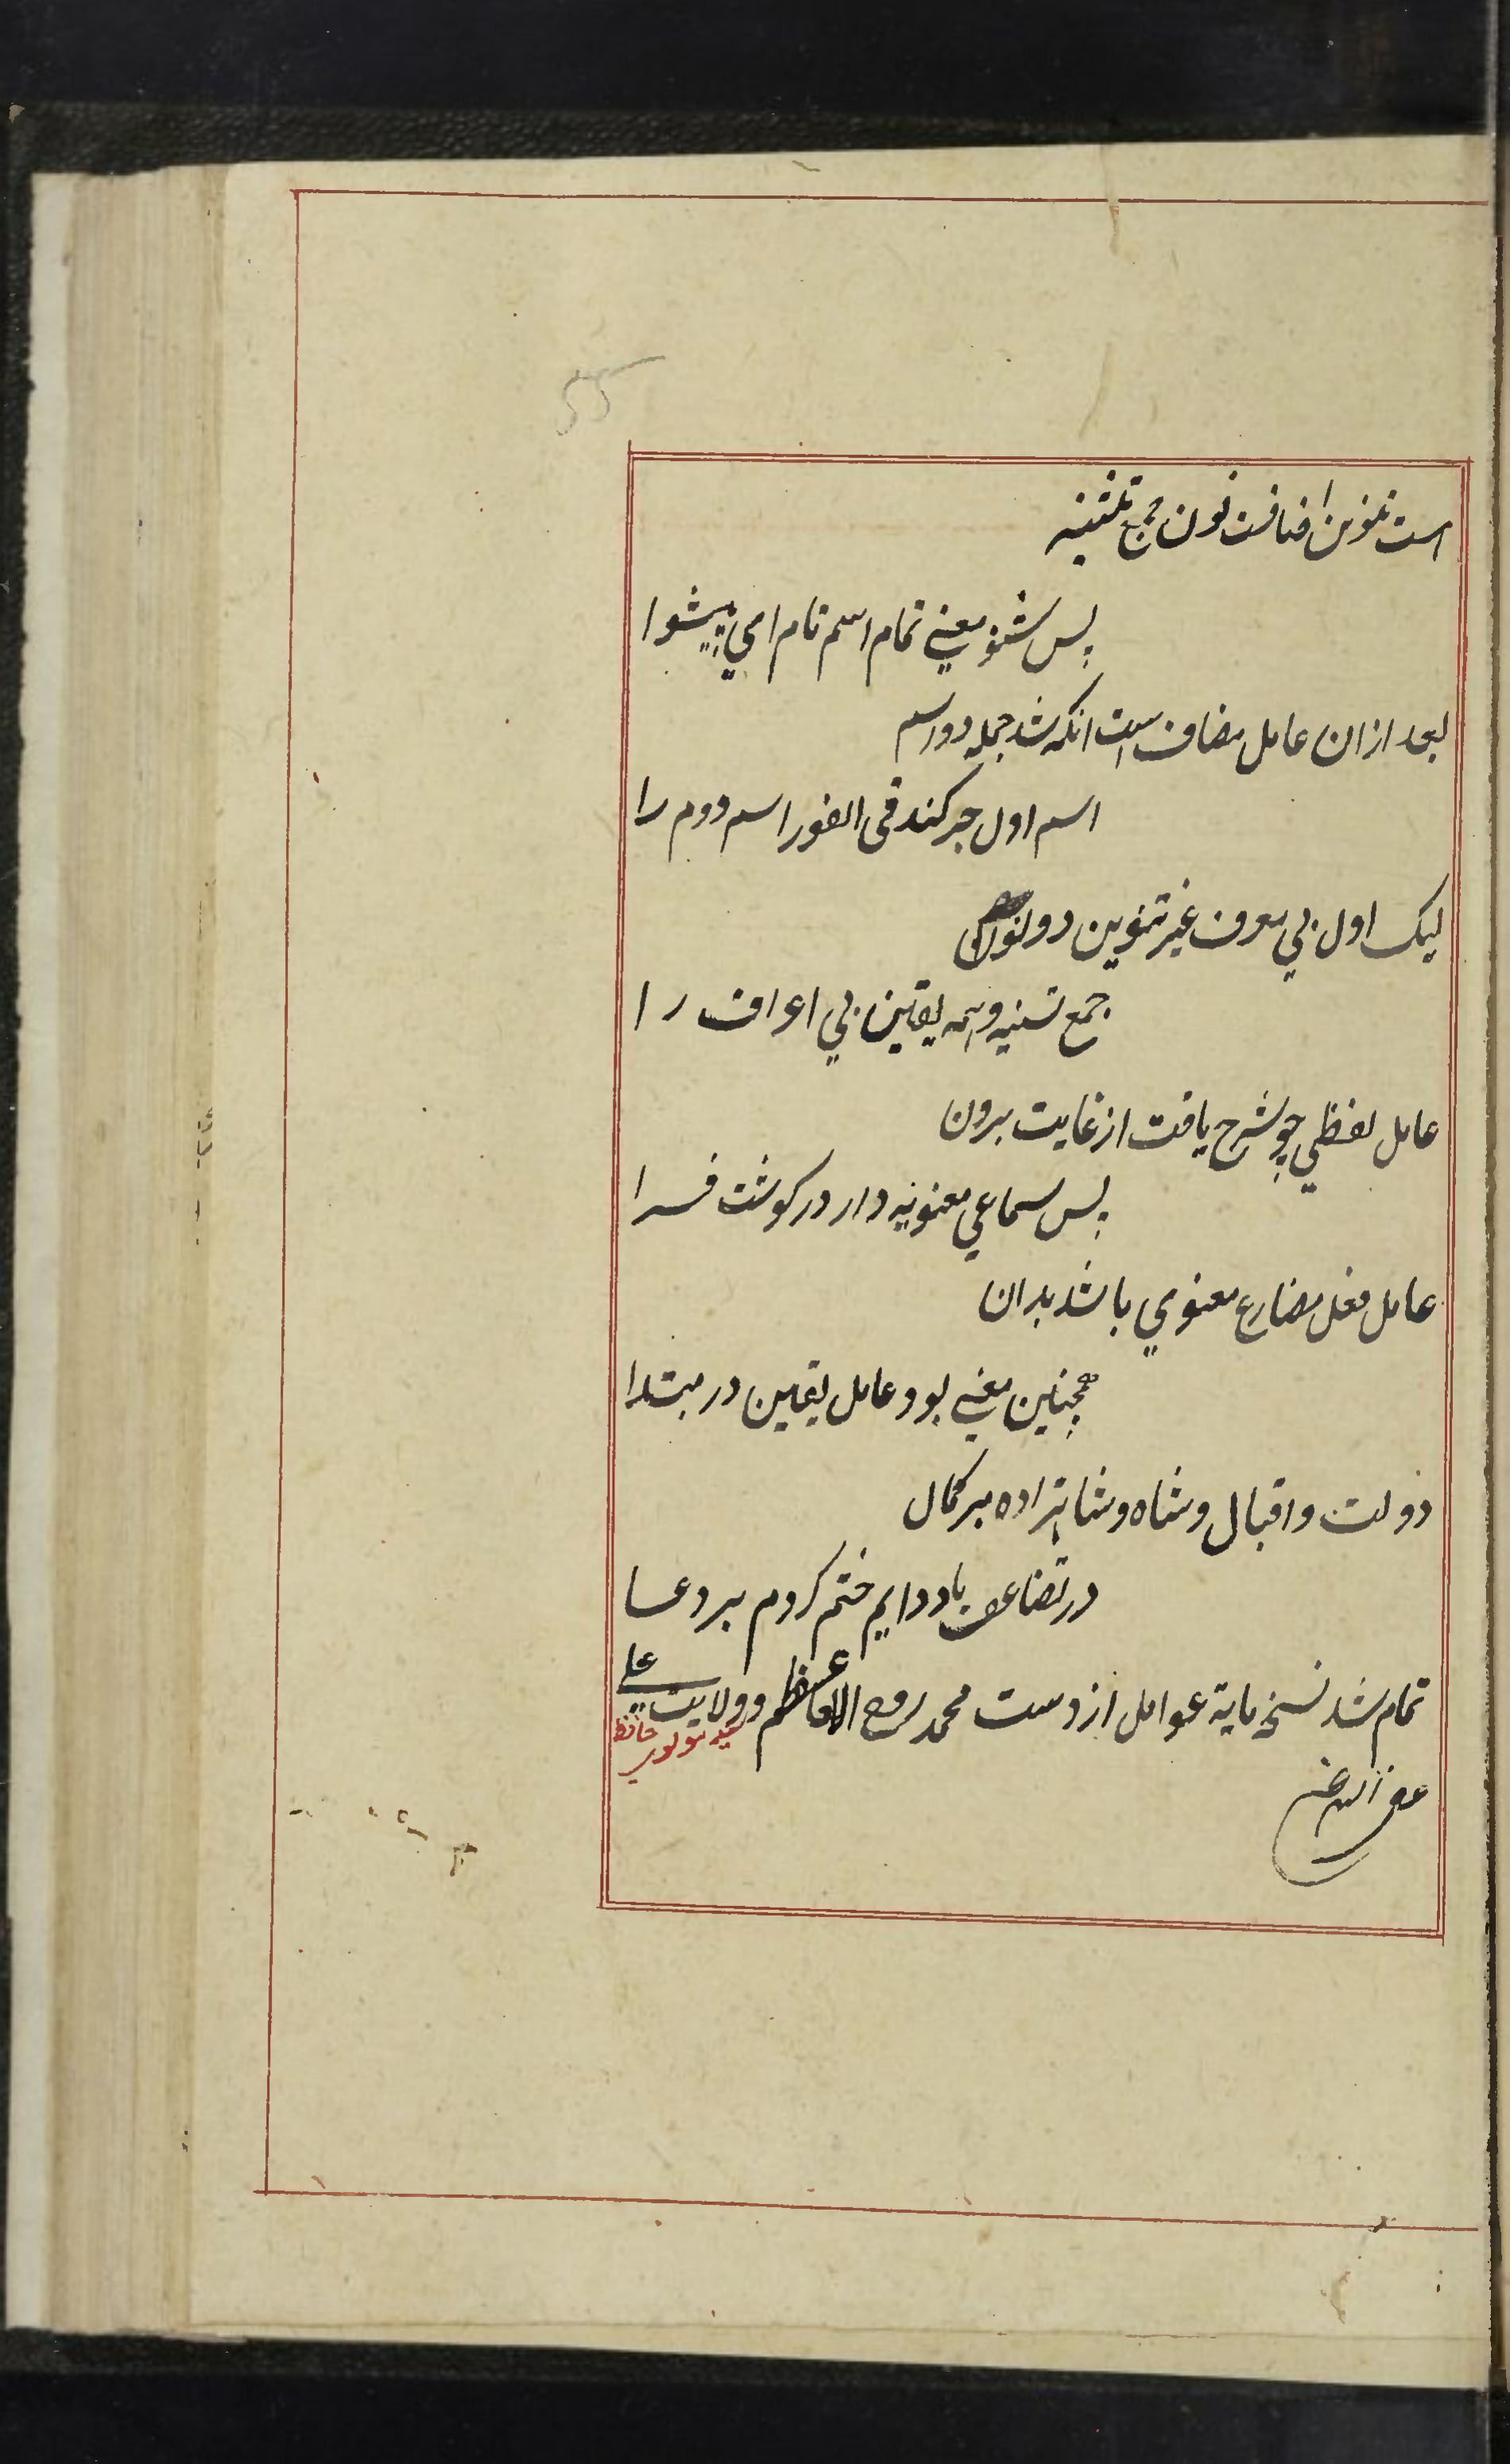 است تنوین اضافت نون جمع تثنیه
پس شنو معنی تمام اسم تام امی پیشوا
بعد ازان عامل مضاف است انکه شد جمله دو اسم
اسم اول جر کند فی الفور اسم دوم را
لیک اول بی معرف غیر تنوین دو نون
جمع تسنیه و همه یقین بی اعراف را
عامل لفظی چو شرح یافت از غایت برون
پس سماعی معنویه دار در کوشت فرا
عامل فعل مضارع معنوی باشد بدان
همچنین معنی بود عامل یقین در مبتدا
دولت و اقبال و شاه و شاهزاده بر کمال
در تضاعف باد دایم ختم کردم بر دعا
تمام شد نسخه مایة عوامل از دست محمد روح الاعظم و ولایت علی
حافظ
عفی الله عنه